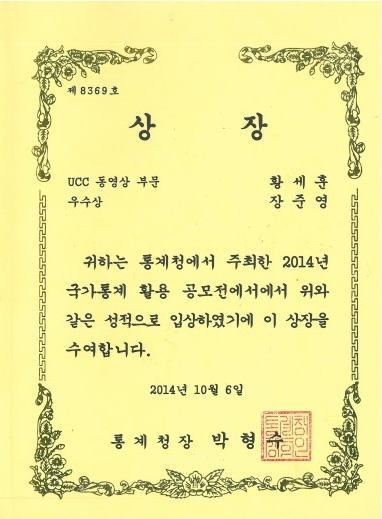 제 8369 호
상 장
UCC 동영상 부문 황 세 훈
우수상 장 준 영
귀하는 통계청에서 주최한 2014년
국가통계 활용 공모전에서에서 위와
같은 성적으로 입상하였기에 이 상장을
수여합니다.
2014년 10월 6일
통 계 청 장 박 형 수